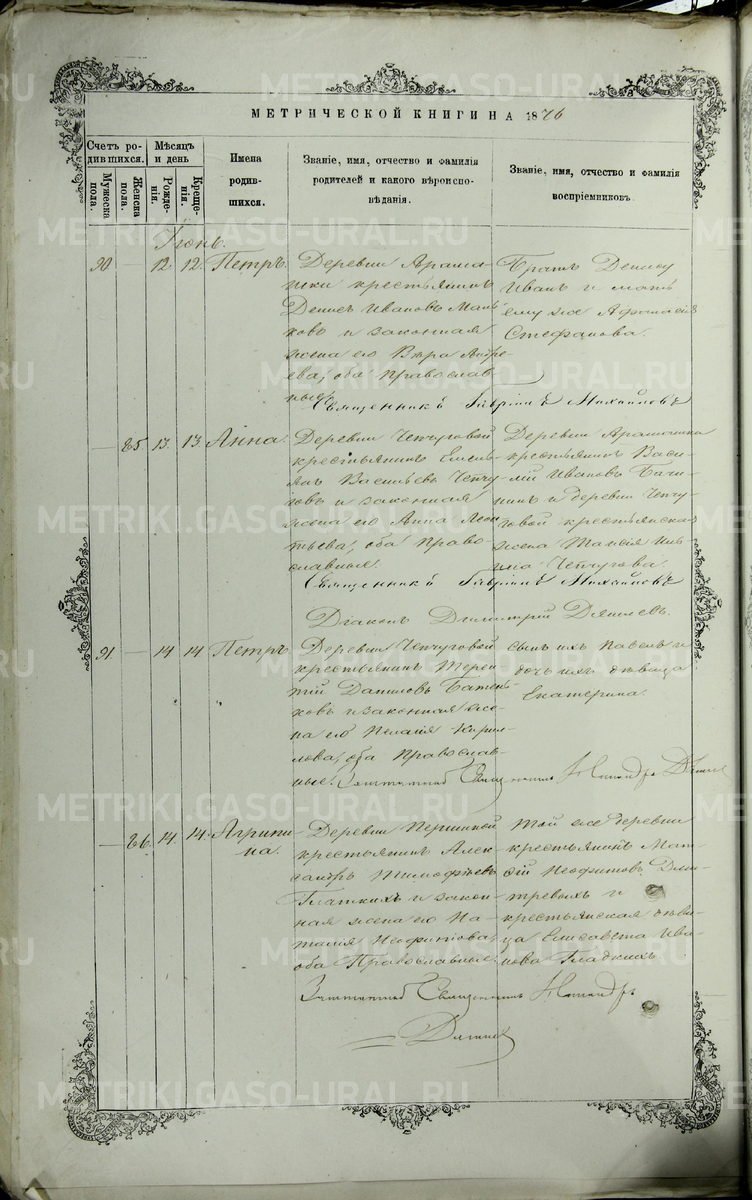 МЕТРИЧЕСКОЙ КНИГИ НА 1876
Счетъ родившихся.
Мужеска пола.
Женска пола.
Мѣсяцъ и день
Рожденія.
Крещенія.
Имена родившихся.
Званіе, имя, отчество и фамилія родителей и какого вѣроисповѣданія.
Званіе, имя, отчество и фамилія воспріемниковъ.
Іюнь.
90. — 12 12. Петръ.
Деревни Арамашки крестьянинъ
Денисъ Ивановъ
и законная
жена его Вѣра Андреева, оба Православные.
Братъ Денису
Иванъ и мать
ему же Афанасія
Стефанова.
Священникъ Гавріилъ Михайловъ
— 85 13. 13. Анна.
Деревни Чепчуговой
крестьянинъ Емельянъ Васильевъ Чепчуговъ и законная
жена его Анна Леонтьева, оба Православные.
крестьянинъ Василій Ивановъ
и деревни Чепчуговой крестьянская
жена Таисія
Чепчугова.
Священникъ Гавріилъ Михайловъ
Діаконъ Димитрій
91. — 14 14. Петръ.
Деревни Чепчуговой
крестьянинъ Терентій Даниловъ
и законная жена его Пелагія Кирилова, оба Православные.
сынъ ихъ Павелъ и
дочь ихъ дѣвица
Екатерина.
Заштатный Священникъ Никандръ
— 86. 14. 14. Агрипина.
Деревни Першиной
крестьянинъ Александръ Тимофѣевъ
Гладкихъ и законная жена его Наталія Неофитова,
оба Православные.
Той же деревни
крестьянинъ
Неофитовъ Дмитревыхъ и
крестьянская дѣвица Елисавета Иванова Гладкихъ
Заштатный Священникъ Никандръ
METRIKI.GASO-URAL.RU